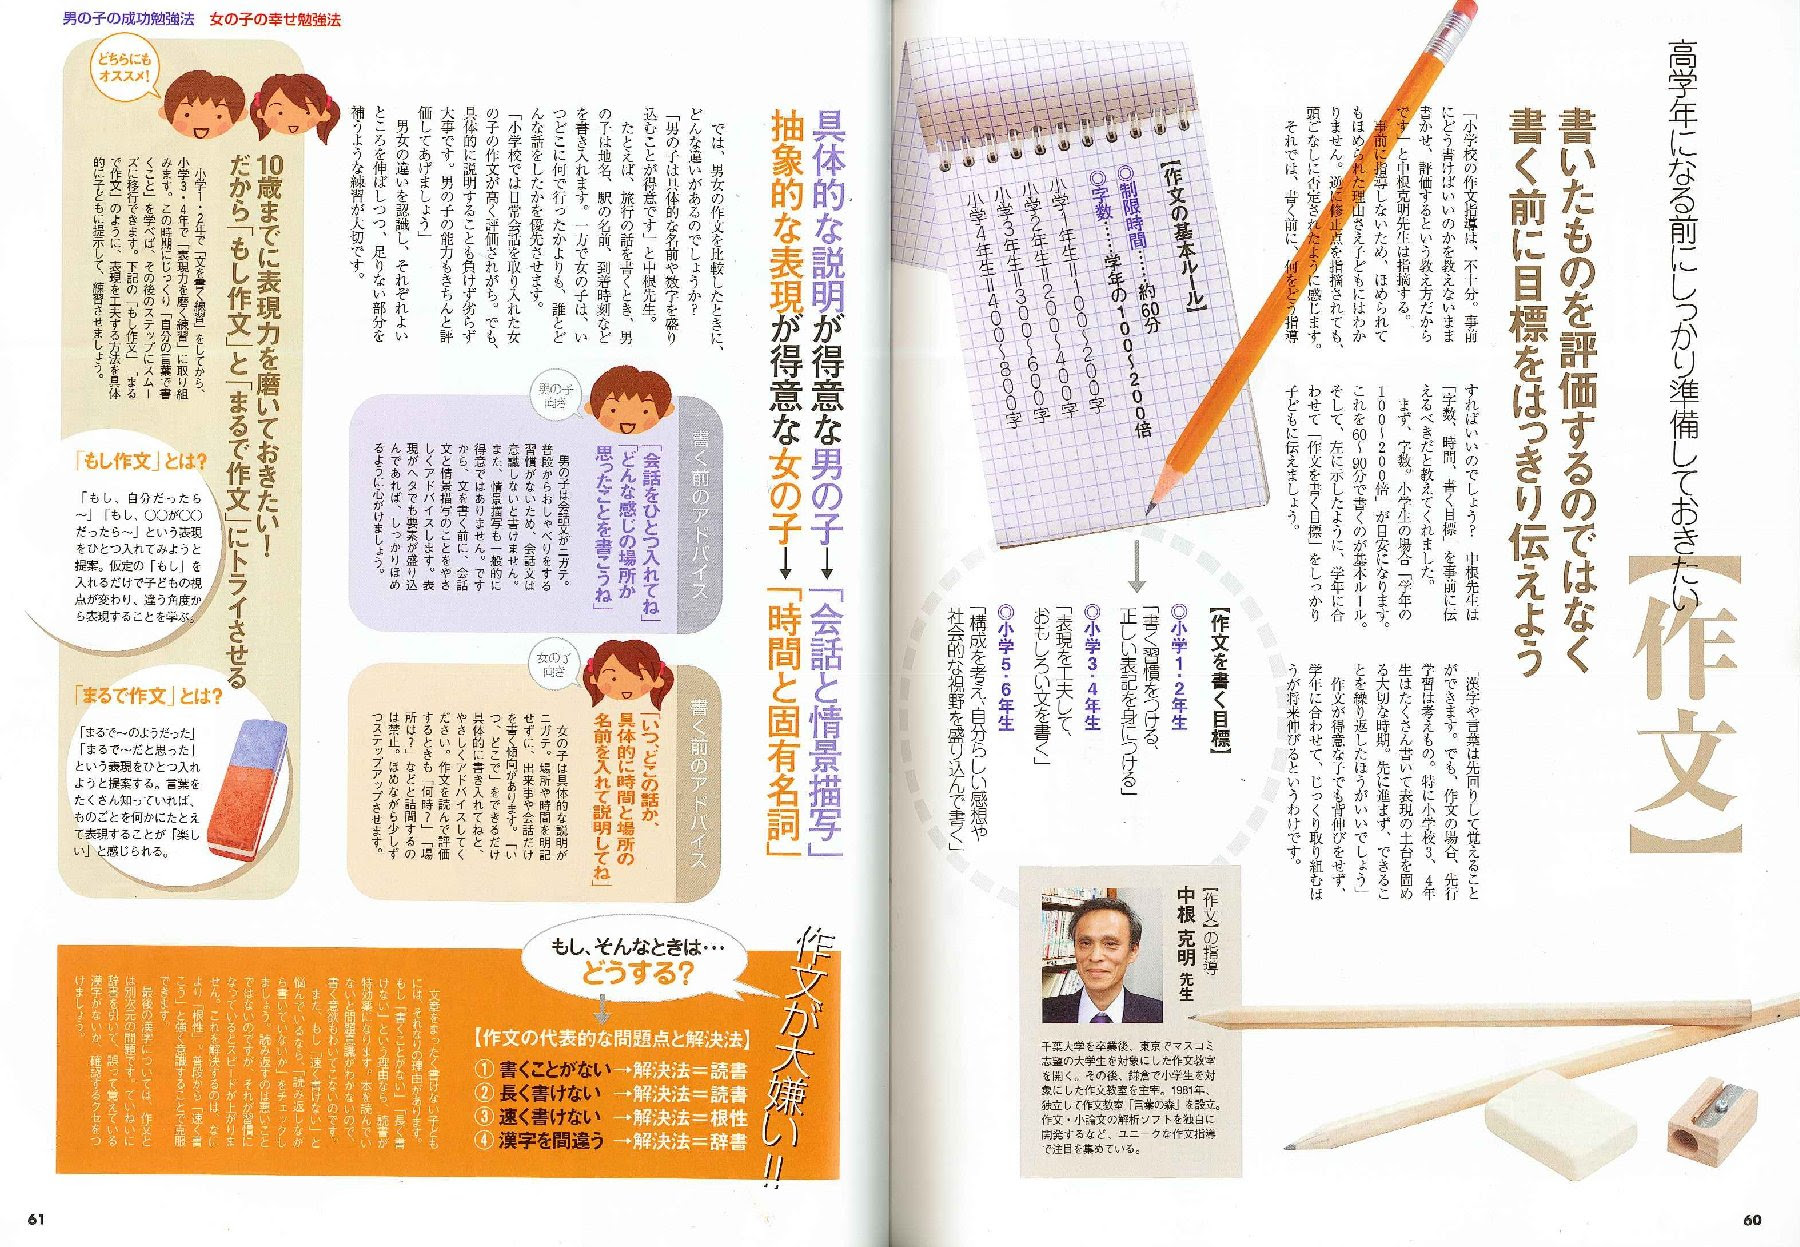 高学年になる前にしっかり準備しておきたい
【作文】
書いたものを評価するのではなく
書く前に目標をはっきり伝えよう
「小学校の作文指導は、不十分。事前
にどう書けばいいのかを教えないまま
書かせ、評価するという教え方だから
です」と中根克明先生は指摘する。
事前に指導しないため、ほめられて
もほめられた理由さえ子どもにはわか
りません。逆に修正点を指摘されても、
頭ごなしに否定されたように感じます。
それでは、書く前に、何をどう指導
すればいいのでしょう？ 中根先生は
「字数、時間、書く目標」を事前に伝
えるべきだと教えてくれました。
まず、字数。小学生の場合「学年の
100〜200倍」が目安になります。
これを60〜90分で書くのが基本ルール。
そして、左に示したように、学年に合
わせて「作文を書く目標」をしっかり
子どもに伝えましょう。
漢字や言葉は先回りして覚えること
ができます。でも、作文の場合、先行
学習は考えもの。特に小学校3、4年
生はたくさん書いて表現の土台を固め
る大切な時期。先に進まず、できるこ
とを繰り返したほうがいいでしょう」
作文が得意な子でも背伸びをせず、
学年に合わせて、じっくり取り組むほ
うが将来伸びるというわけです。
【作文の基本ルール】
◎制限時間……約60分
◎字数……学年の100〜200倍
小学1年生＝100〜200字
小学2年生＝200〜400字
小学3年生＝300〜600字
小学4年生＝400〜800字
【作文を書く目標】
◎小学1・2年生
「書く習慣をつける、
正しい表記を身につける」
◎小学3・4年生
「表現を工夫して、
おもしろい文を書く」
◎小学5・6年生
「構成を考え、自分らしい感想や
社会的な視野を盛り込んで書く」
【作文】の指導
中根克明先生
千葉大学を卒業後、東京でマスコミ
志望の大学生を対象にした作文教室
を開く。その後、鎌倉で小学生を対
象にした作文教室を主宰。1981年、
独立して作文教室「言葉の森」を設立。
作文・小論文の解析ソフトを独自に
開発するなど、ユニークな作文指導
で注目を集めている。
60
男の子の成功勉強法 女の子の幸せ勉強法
具体的な説明が得意な男の子→「会話と情景描写」
抽象的な表現が得意な女の子→「時間と固有名詞」
では、男女の作文を比較したときに、
どんな違いがあるのでしょうか？
「男の子は具体的な名前や数字を盛り
込むことが得意です」と中根先生。
たとえば、旅行の話を書くとき、男
の子は地名、駅の名前、到着時刻など
を書き入れます。一方で女の子は、い
つどこに何で行ったかよりも、誰とど
んな話をしたかを優先させます。
「小学校では日常会話を取り入れた女
の子の作文が高く評価されがち。でも、
具体的に説明することも負けず劣らず
大事です。男の子の能力もきちんと評
価してあげましょう」
男女の違いを認識し、それぞれよい
ところを伸ばしつつ、足りない部分を
補うような練習が大切です。
男の子
向き
書く前のアドバイス
「会話をひとつ入れてね」
「どんな感じの場所か
思ったことを書こうね」
男の子は会話文がニガテ。
普段からおしゃべりをする
習慣がないため、会話文は
意識しないと書けません。
また、情景描写も一般的に
得意ではありません。です
から、文を書く前に、会話
文と情景描写のことをやさ
しくアドバイスします。表
現がヘタでも要素が盛り込
んであれば、しっかりほめ
るように心がけましょう。
女の子
向き
書く前のアドバイス
「いつ、どこの話か、
具体的に時間と場所の
名前を入れて説明してね」
女の子は具体的な説明が
ニガテ。場所や時間を明記
せずに、出来事や会話だけ
を書く傾向があります。「い
つ、どこで」をできるだけ
具体的に書き入れてねと、
やさしくアドバイスしてく
ださい。作文を読んで評価
するときも「何時？」「場
所は？」などと詰問するの
は禁止。ほめながら少しず
つステップアップさせます。
どちらにも
オススメ！
10歳までに表現力を磨いておきたい！
だから「もし作文」と「まるで作文」にトライさせる
小学1・2年で「文を書く練習」をしてから、
小学3・4年で「表現力を磨く練習」に取り組
みます。この時期にじっくり「自分の言葉で書
くこと」を学べば、その後のステップにスムー
ズに移行できます。下記の「もし作文」「まる
で作文」のように、表現を工夫する方法を具体
的に子どもに提示して、練習させましょう。
「もし作文」とは？
「もし、自分だったら
〜」「もし、○○が○○
だったら〜」という表現
をひとつ入れてみようと
提案。仮定の「もし」を
入れるだけで子どもの視
点が変わり、違う角度か
ら表現することを学ぶ。
「まるで作文」とは？
「まるで〜のようだった」
「まるで〜だと思った」
という表現をひとつ入れ
ようと提案する。言葉を
たくさん知っていれば、
ものごとを何かにたとえ
て表現することが「楽し
い」と感じられる。
作文が大嫌い!!
もし、そんなときは…
どうする？
【作文の代表的な問題点と解決法】
①書くことがない→解決法＝読書
②長く書けない→解決法＝読書
③速く書けない→解決法＝根性
④漢字を間違う→解決法＝辞書
文章をまったく書けない子ども
には、それなりの理由があります。
もし「書くことがない」「長く書
けない」という理由なら、読書が
特効薬になります。本を読んでい
ないと問題意識がわかないので、
書く意欲もわいてこないのです。
また、もし「速く書けない」と
悩んでいるなら、「読み返しなが
ら書いていないか」をチェックし
ましょう。読み返すのは悪いこと
ではないのですが、それが習慣に
なっているとスピードが上がりま
せん。これを解決するのは、なに
より「根性」。普段から「速く書
こう」と強く意識することで克服
できます。
最後の漢字については、作文と
は別次元の問題です。ていねいに
辞書を引いて、誤って覚えている
漢字がないか、確認するクセをつ
けましょう。
61